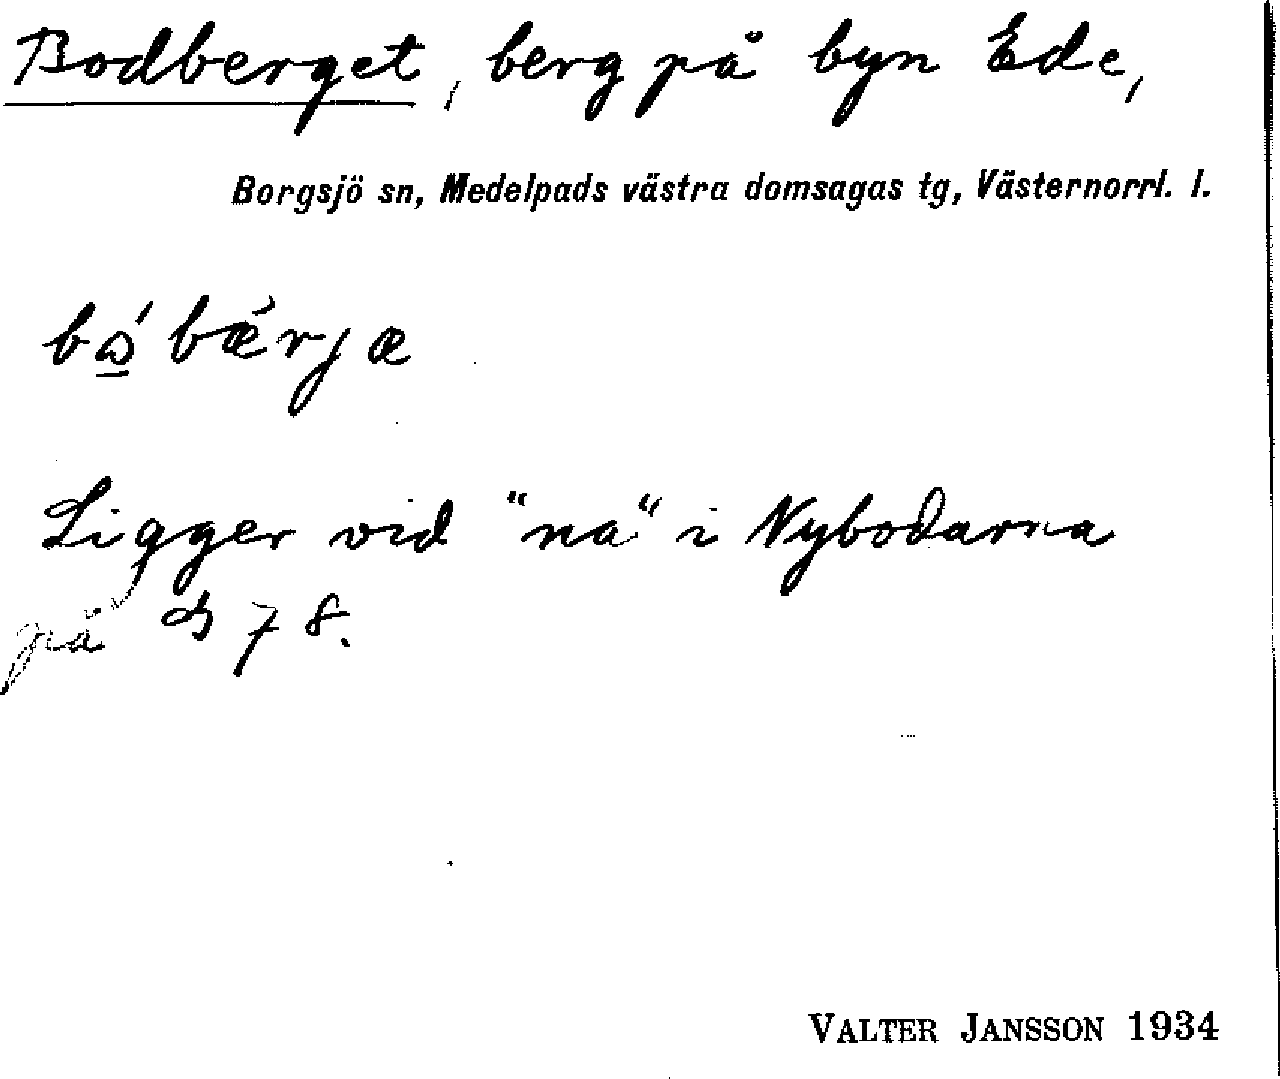 Bodberget, berg på byn Ede,
Borgsjö sn, Medelpads västra domsagas tg, Västernorrl. l.
bɷ̲́ bǽrjæ
Ligger vid "na" i Nybodarna
på 78.
VALTER JANSSON 1934